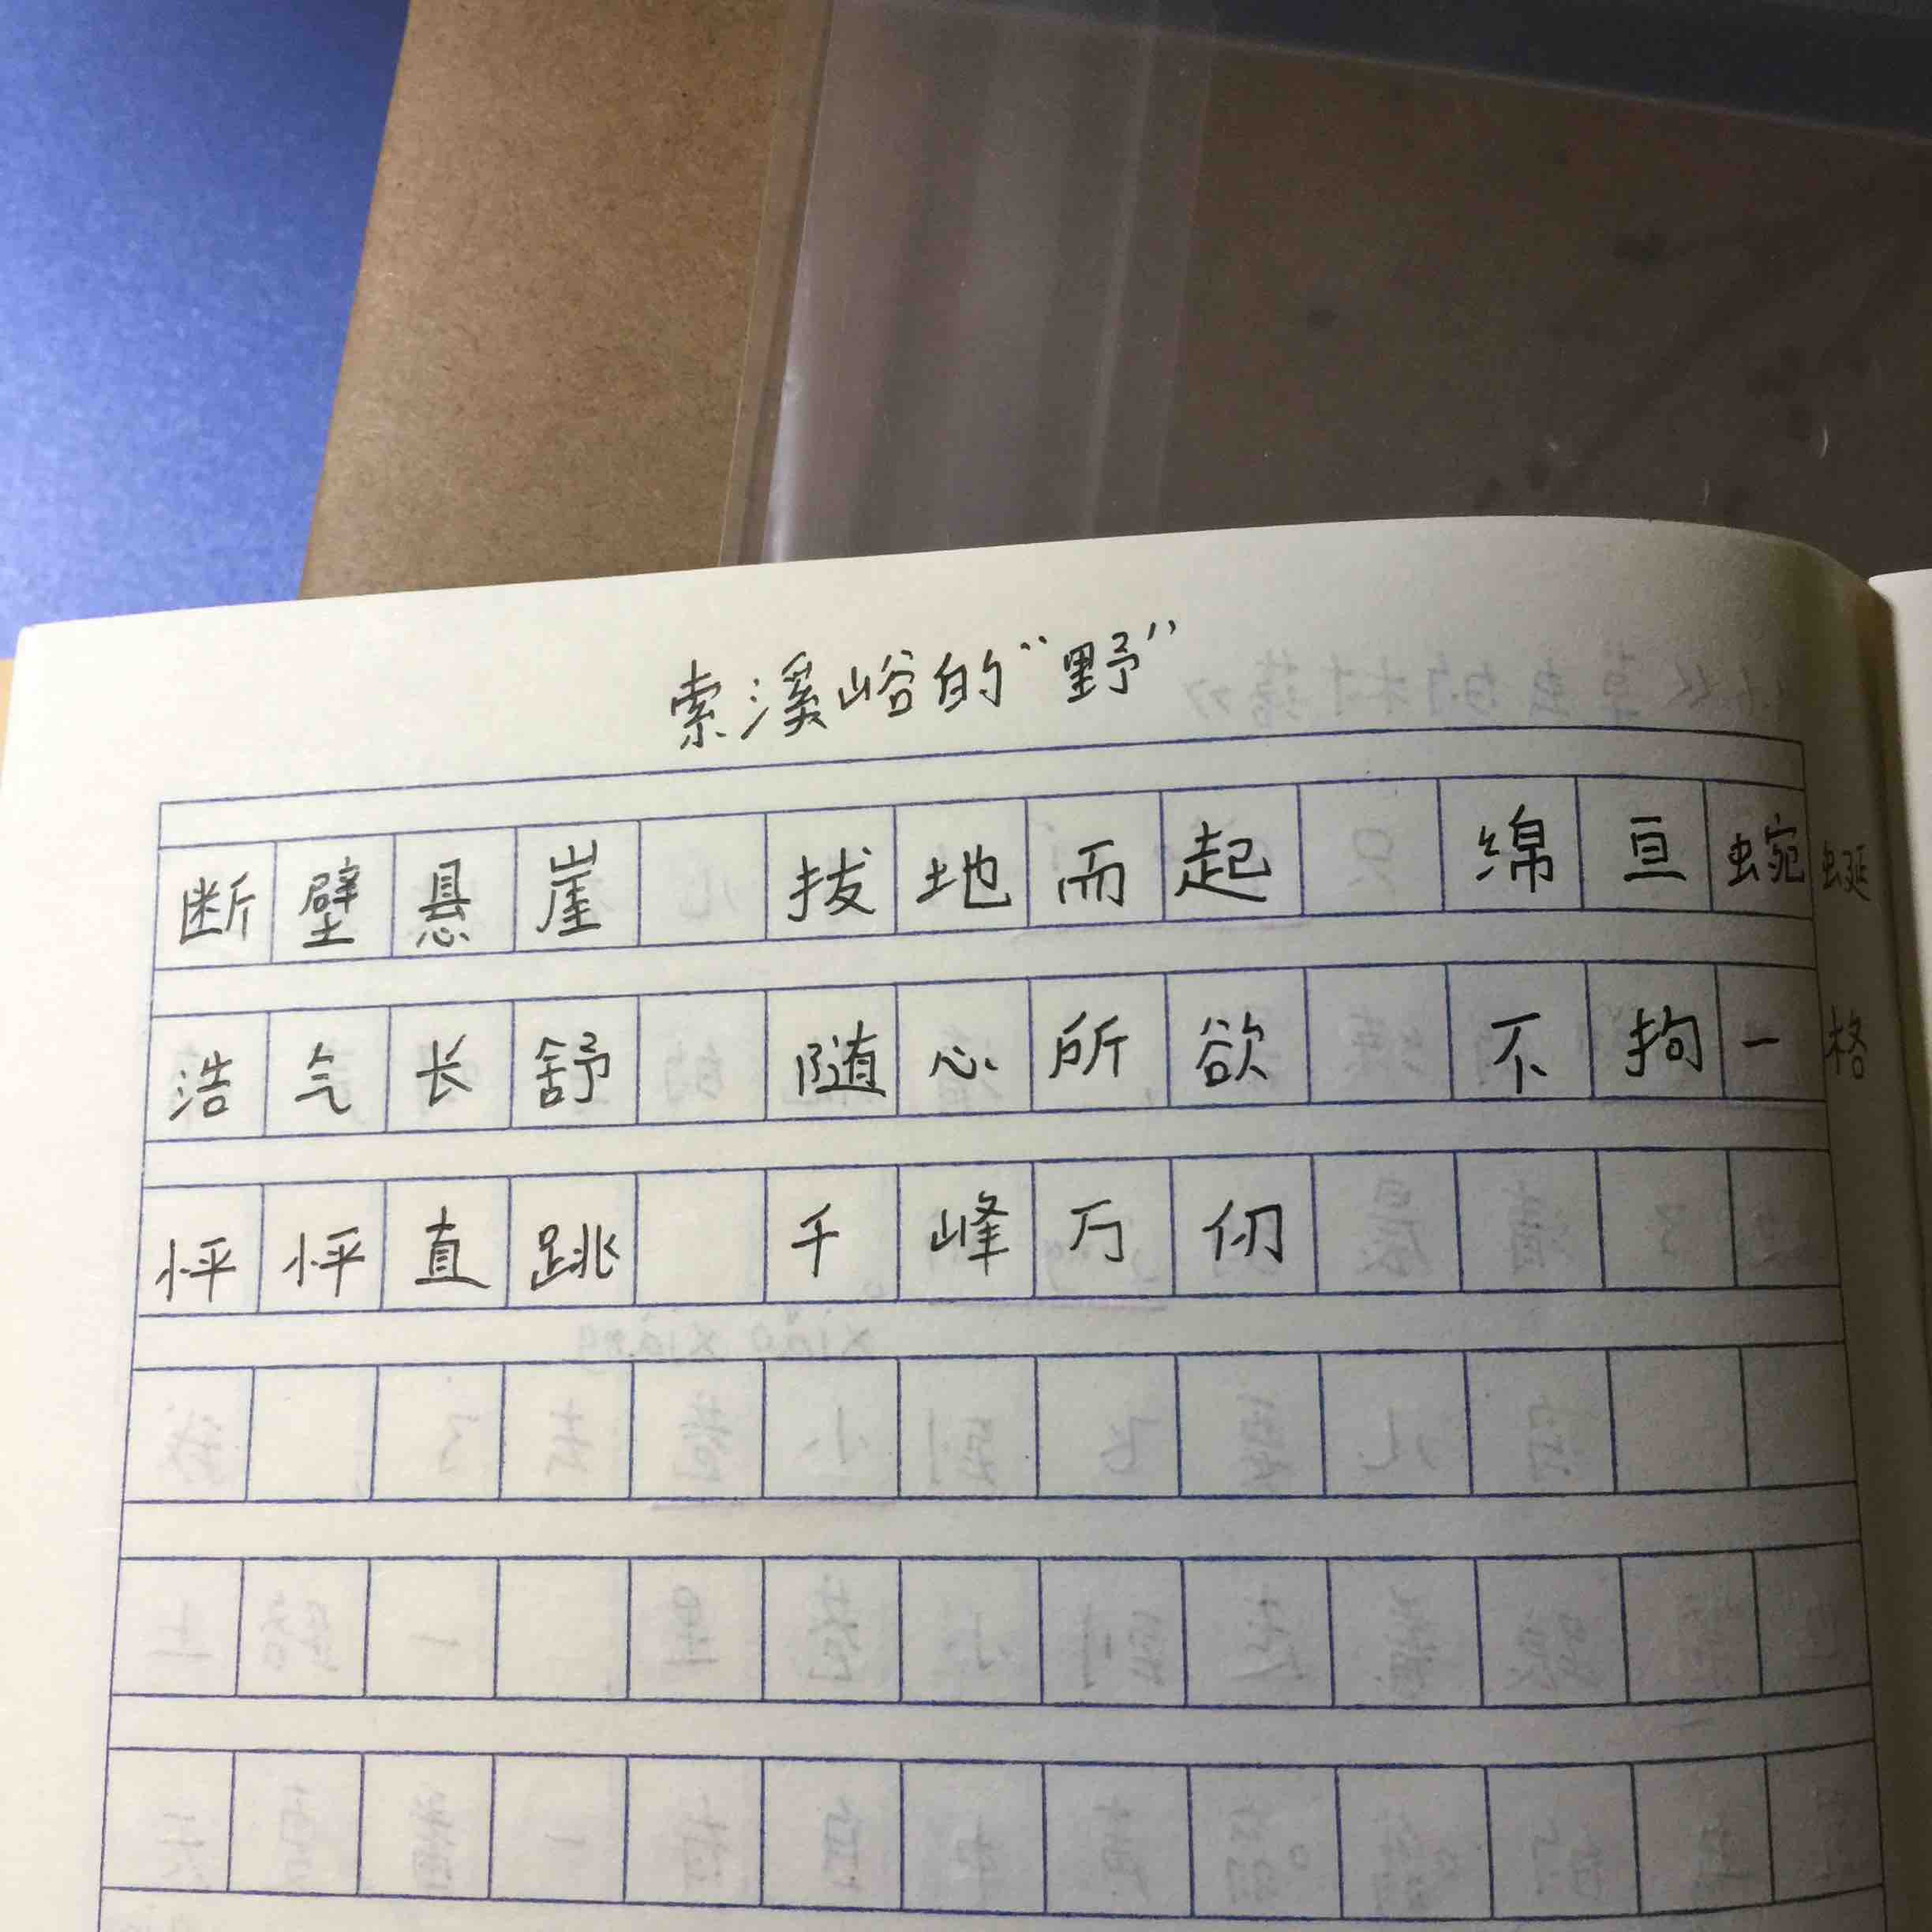 索溪峪的“野”
断壁悬崖 拔地而起 绵亘蜿蜒
浩气长舒 随心所欲 不拘一格
怦怦直跳 千峰万仞